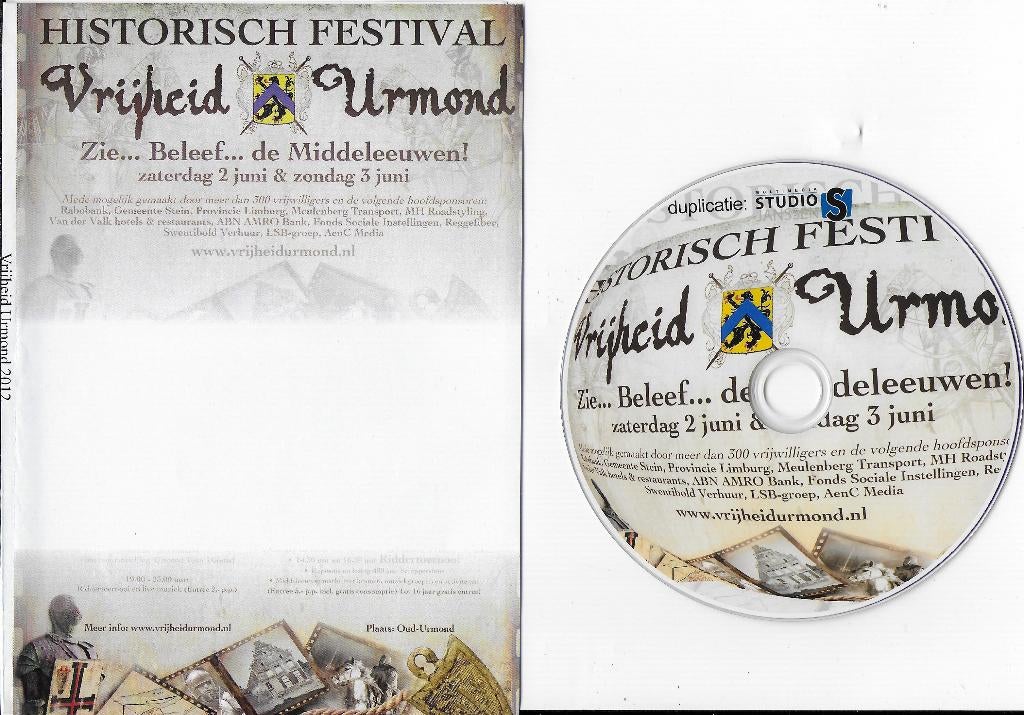 HISTORISCH FESTIVAL
Vrijheid Urmond
Zie... Beleef... de Middeleeuwen!
zaterdag 2 juni & zondag 3 juni
Mede mogelijk gemaakt door meer dan 300 vrijwilligers en de volgende hoofdsponsoren:
Rabobank, Gemeente Stein, Provincie Limburg, Meulenberg Transport, MH Roadstyling,
Van der Valk hotels & restaurants, ABN AMRO Bank, Fonds Sociale Instellingen, Reggefiber,
Swentibold Verhuur, LSB-groep, AenC Media
www.vrijheidurmond.nl
Vrijheid Urmond 2012
19.00 - 23.00 uur:
(Entree 5,- p.p. incl. gratis consumptie) tot 16 jaar gratis entree!
Meer info: www.vrijheidurmond.nl
Plaats: Oud-Urmond
duplicatie: MULTI MEDIA STUDIO S
STORISCH FESTI
Vrijheid Urmo
Zie... Beleef... de deleeuwen!
zaterdag 2 juni & dag 3 juni
gemaakt door meer dan 300 vrijwilligers en de volgende hoofdspons
Gemeente Stein, Provincie Limburg, Meulenberg Transport, MH Roadst
Valk hotels & restaurants, ABN AMRO Bank, Fonds Sociale Instellingen, Re
Swentibold Verhuur, LSB-groep, AenC Media
www.vrijheidurmond.nl